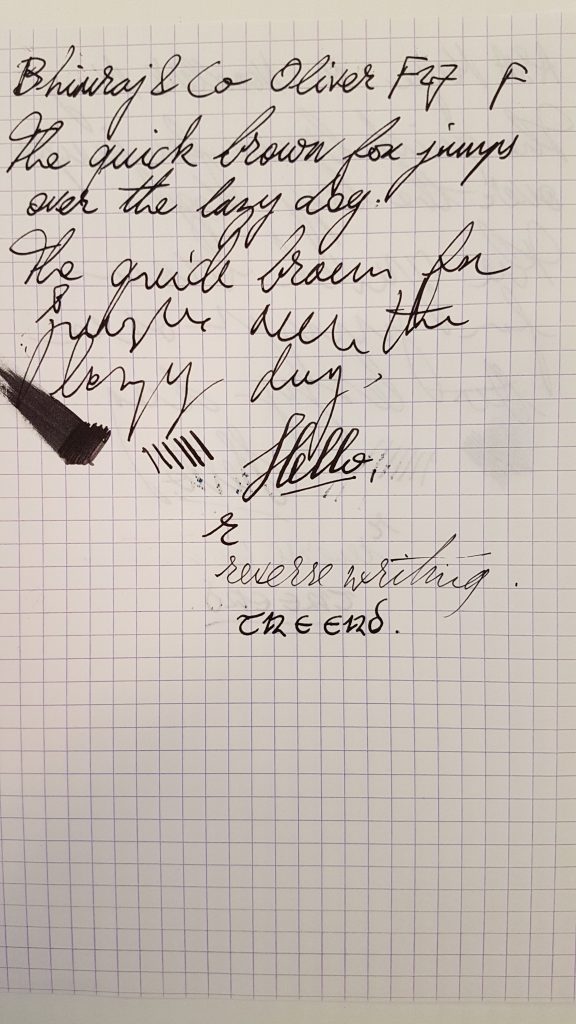 Bhimraj & Co Oliver F27 F
The quick brown fox jumps
over the lazy dog.
The quick brown fox
jumps over the
lazy dog,
Hello,
r
reverse writing.
THE END.